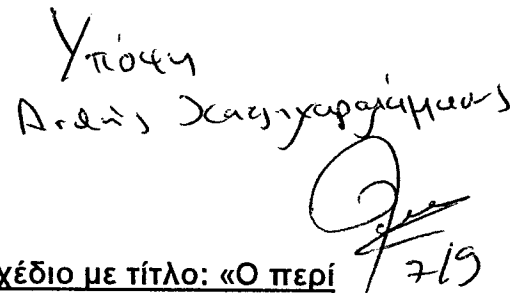 Υπόψη
Χατζηχαραλάμπους
7/9
χέδιο με τίτλο: «Ο περί